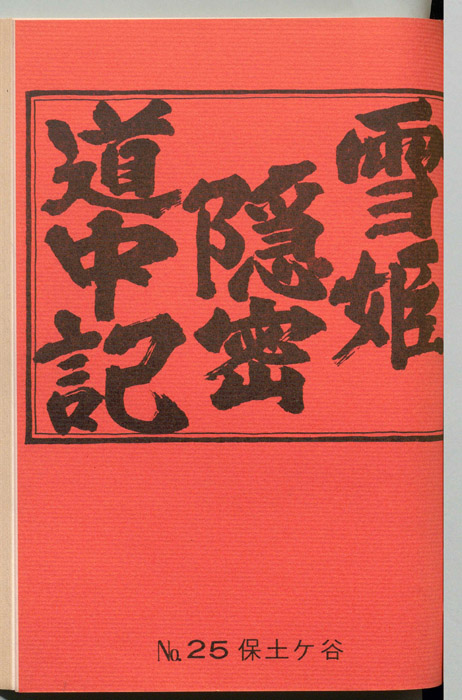 雪姫
隠密
道中記
No.25 保土ケ谷